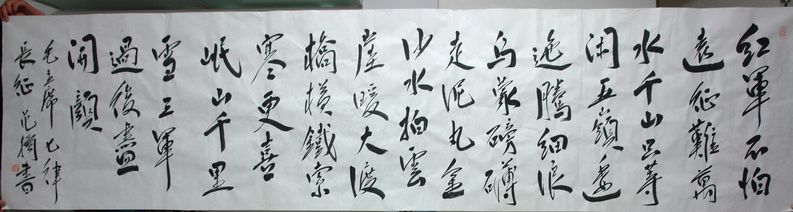 紅軍不怕
遠征難萬
水千山只等
閑五嶺逶
迤騰細浪
烏蒙磅礴
走泥丸金
沙水拍雲
崖暖大渡
橋橫鐵索
寒更喜
岷山千里
雪三軍
過後盡
開顏
毛主席七律
長征 書